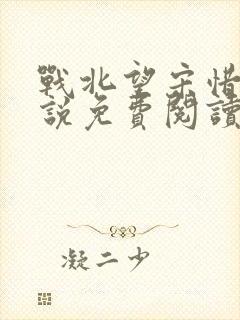 戰北望宋惜
說免費閱讀
凝二少